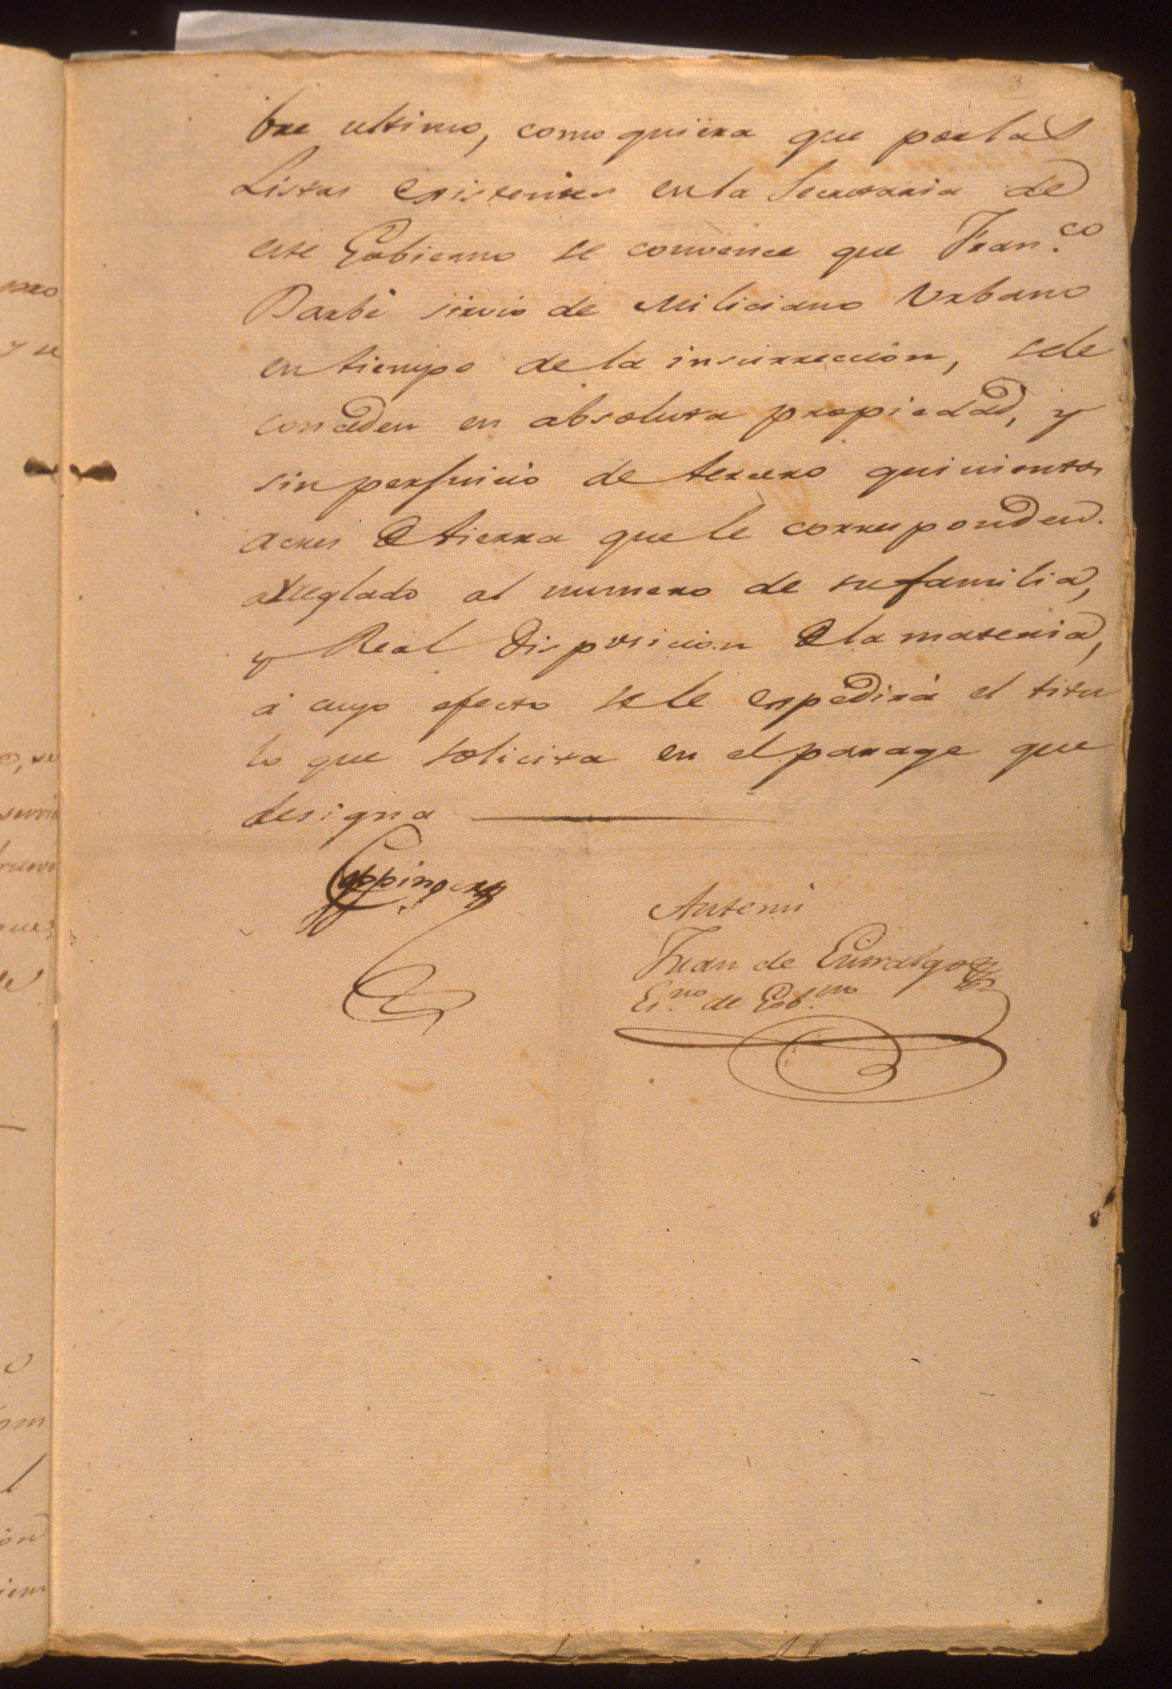 3
bre ultimo, como quiera que por las
Listas existentes en la Secretaria de
este Gobierno se convence que Fran.co
Barbè sirvio de Miliciano Urbano
en tiempo de la insurreccion, sele
conceden en absoluta propiedad, y
sin perjuicio de tercero quinientos
acres de tierra que le corresponden.
arreglado al numero de su familia,
y Real Disposicion de la materia,
à cuyo efecto se le expedirá el titu
lo que solicita en el parage que
designa
Coppinger
Antemi
Juan de Entralgo
Es.no de Gob.no
pxo
y se
o, se
servi
nuevo
que
de
o
om
l
ion
iem